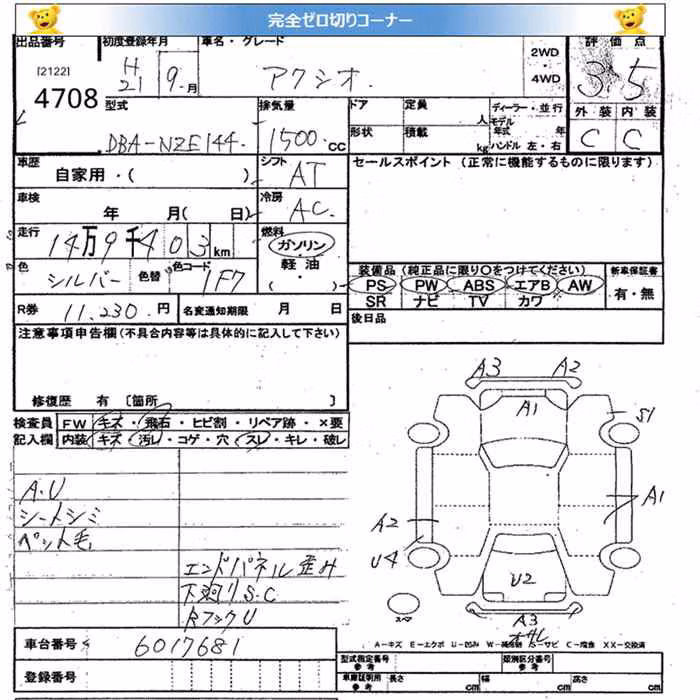 完全ゼロ切りコーナー
出品番号 初度登録年月 車名・グレード 2WD ・ 4WD 評価点
[2122]
4708
H21 9.月 アクシオ. 3.5
型式 排気量 ドア 定員 人 ディーラー・並行 外装 内装
DBA-NZE144. 1500.cc 形状 積載 kg モデル年式 年 ハンドル 左・右 C C
車歴 自家用・( ) シフト AT セールスポイント (正常に機能するものに限ります)
車検 年 月( 日) 冷房 AC.
走行 14万9千403km 燃料 ガソリン・軽油・( )
色 シルバー 色替 色コード 1F7
装備品 (純正品に限り○をつけてください) 新車保証書
PS PW ABS エアB AW 有・無
SR ナビ TV カワ
R券 11,230.円 名変通知期限 月 日 後日品
注意事項申告欄(不具合内容等は具体的に記入して下さい)
修復歴 有 〔箇所 〕
検査員記入欄 FW キズ・飛石・ヒビ割・リペア跡・×要
内装 キズ・汚レ・コゲ・穴・スレ・キレ・破レ
A.U
シートシミ
ペット毛
エンドパネル歪み
下廻りS.C
RフックU
A3 A2
A1
S1
A2 A1
U4
U2
スペア
A3
オサレ
A-キズ E-エクボ U-凹み W-補修跡 S-サビ C-腐食 XX-交換済
車台番号 6017681
登録番号
型式指定番号 参考 類別区分番号 参考
車庫証明用 参考 長さ 幅 高さ